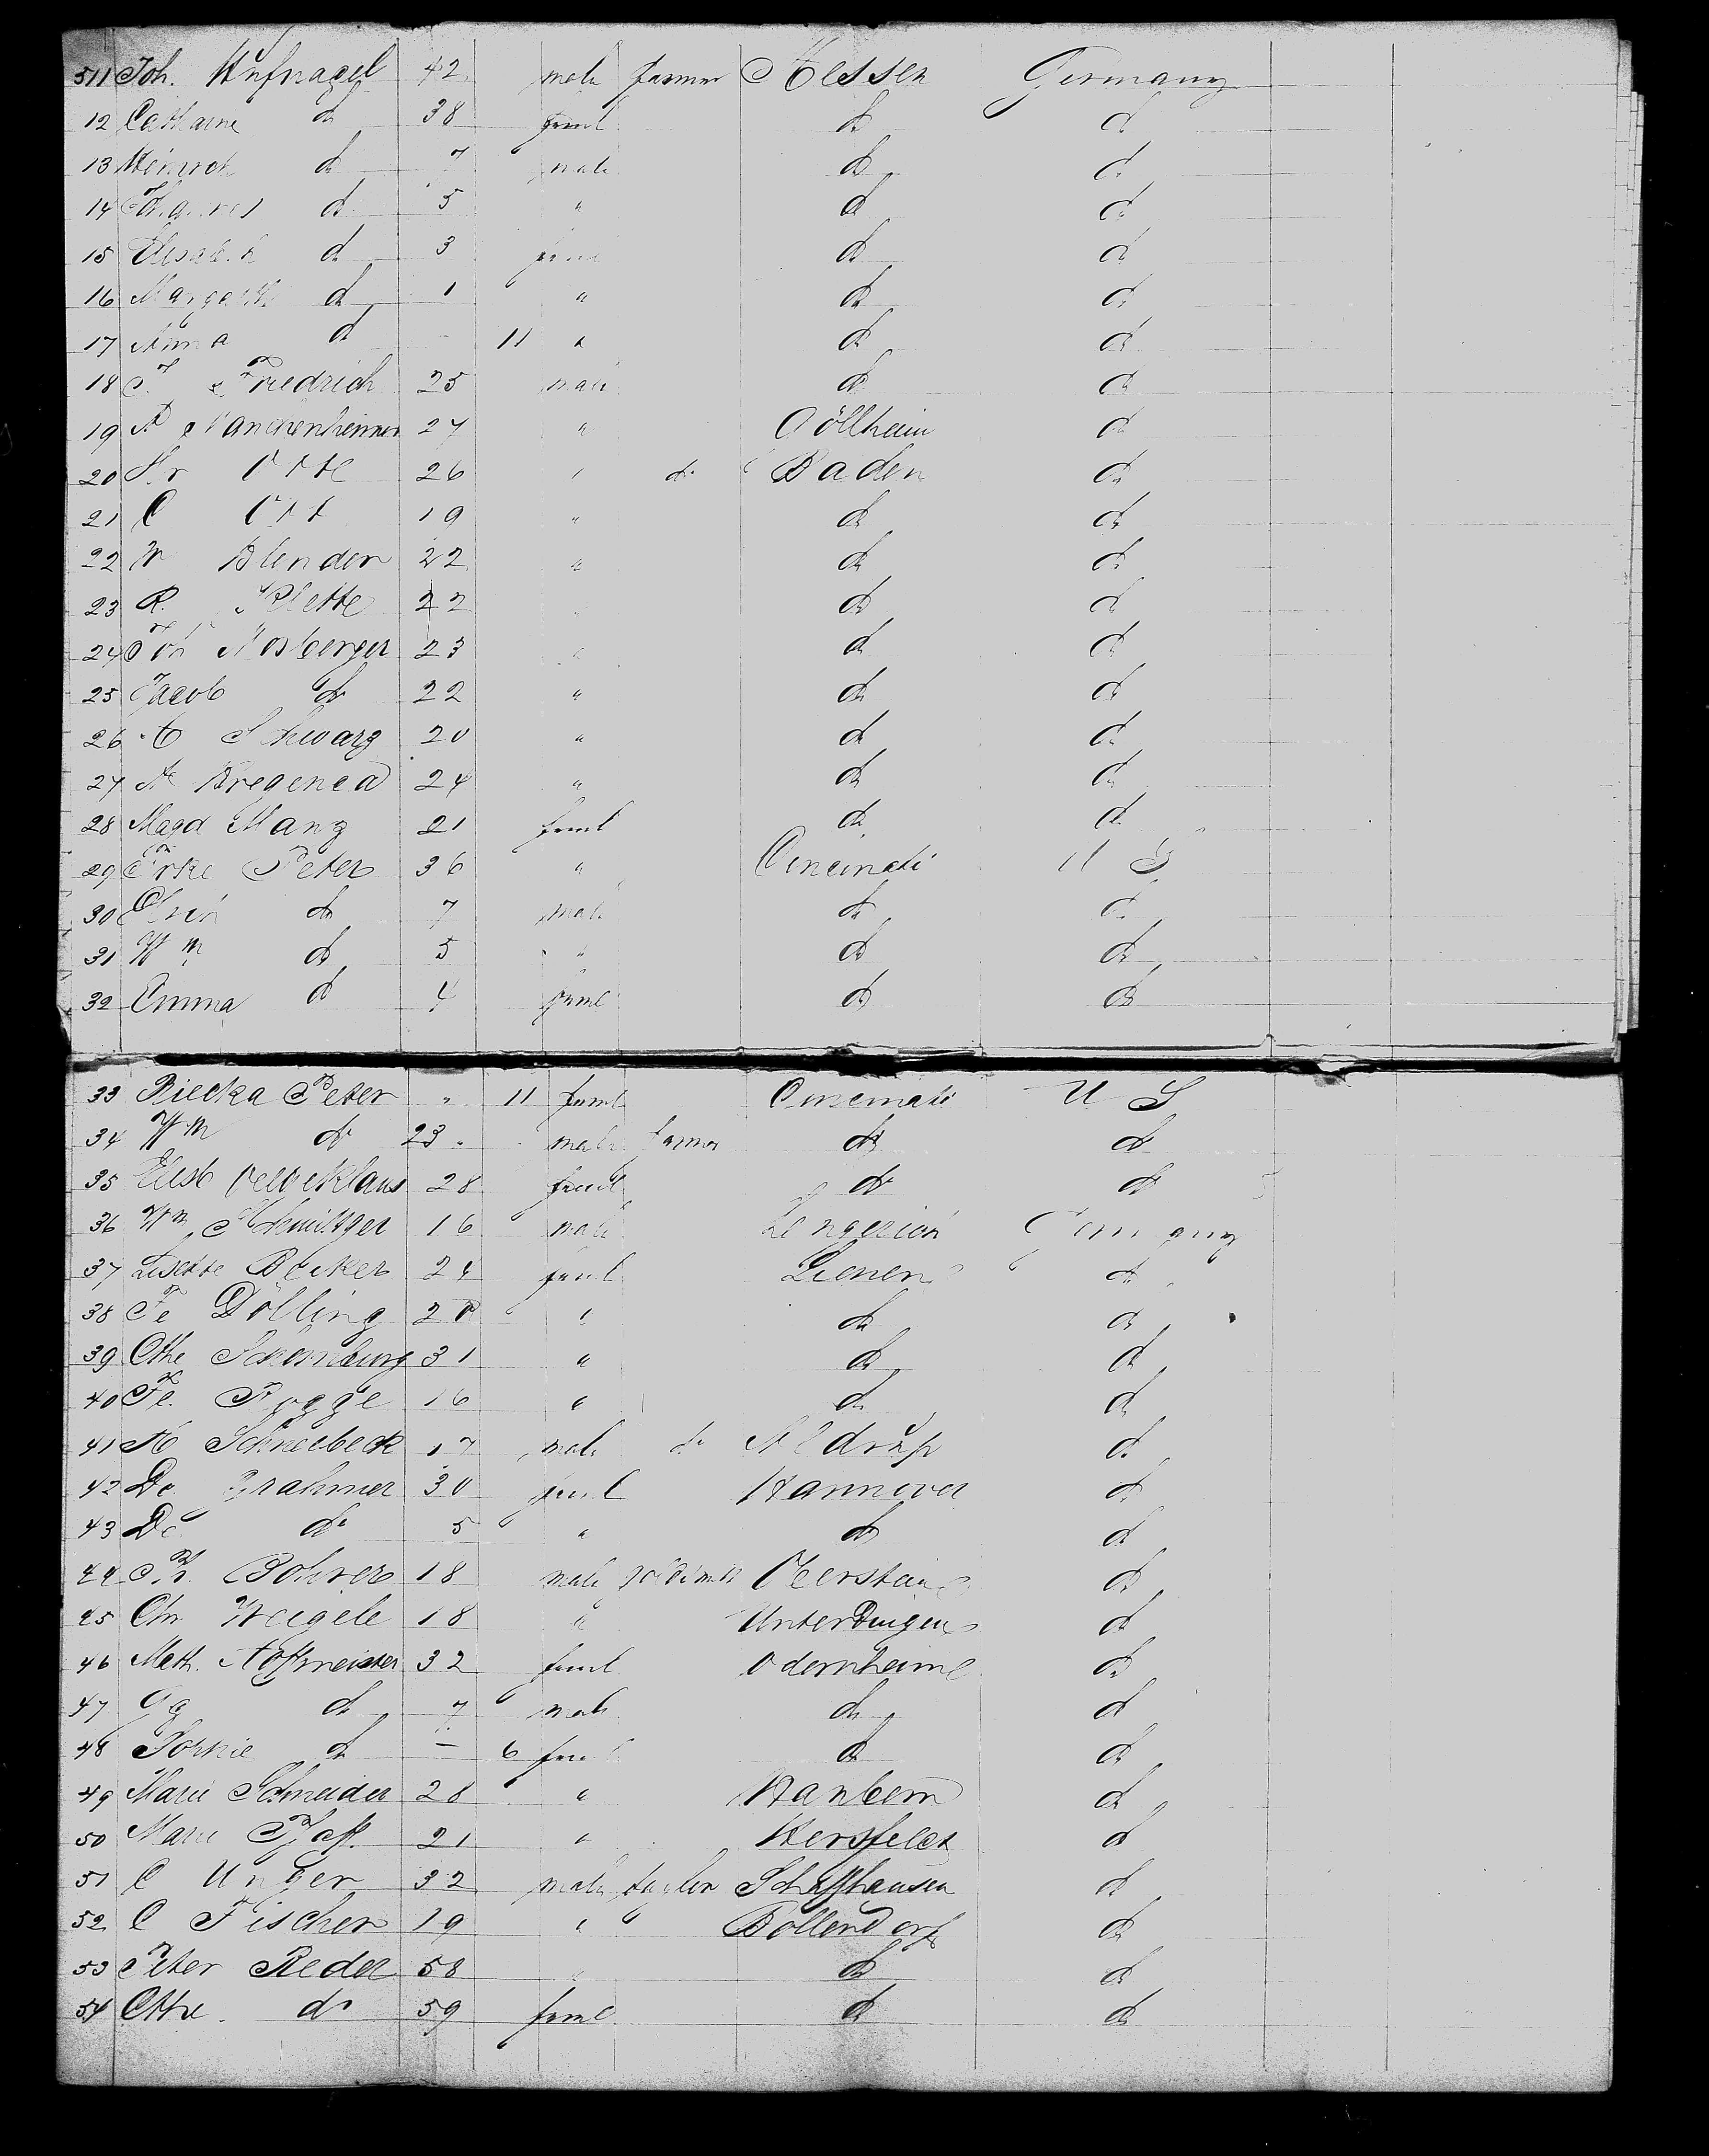 511 Joh. Hufnagel 42 male farmer Hessen Germany
12 Catharine do 38 feml do do
13 Heinrich do 7 male do do
14 Johannes do 5 " do do
15 Elisabeth do 3 feml do do
16 Margareth do 1 " do do
17 Anna do - 11 " do do
18 Friedrich 25 male do do
19 27 " Göllheim do
20 Fr Ott 26 " do Baden do
21 C Ott 19 " do do
22 W Blender 22 " do do
23 R. Plette 22 " do do
24 Joh Mosberger 23 " do do
25 Jacob do 22 " do do
26 A Schwarz 20 " do do
27 A 24 " do do
28 Magd Manz 21 feml do do
29 Peter 36 " Cincinati U S
30 do 7 male do do
31 Wm do 5 " do do
32 Emma do 4 feml do do
33 Riecka Peter " 11 feml Cincinati U S
34 Wm do 23 male farmer do do
35 Elisb 28 feml do do
36 Wm 16 male Lengerich Germany
37 Lisette Becker 24 feml Lienen do
38 Fe Dölling 20 " do do
39 Cthe Schomburg 31 " do do
40 Fe. Rogge 16 " do do
41 A Schneebeck 17 male do do
42 De. Grahmer 30 feml Hannover do
43 De do 5 " do do
44 Ph. Bohrer 18 male goldsmith Oberstein do
45 Chr Weigele 18 " do
46 Math. Hofmeister 32 feml Odernheim do
47 Gg do 7 male do do
48 Sophie do - 6 feml do do
49 Marie Schneider 28 " do
50 Marie Pfaff. 21 " Hersfeldt do
51 C Unger 32 male taylor Schaffhausen do
52 C Fischer 19 " " Bollendorf do
53 Peter Reder 58 " do do
54 Cthe. do 59 feml do do